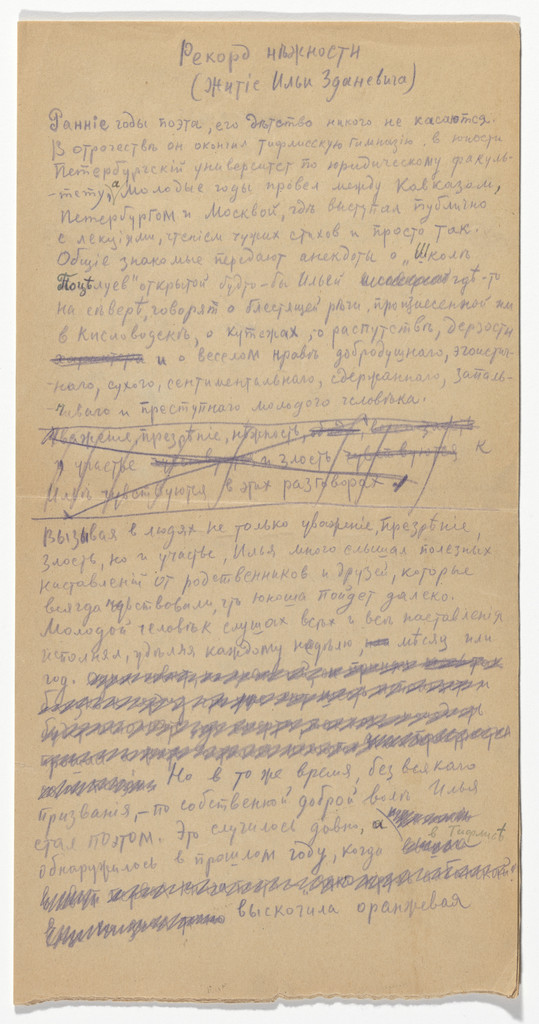 Рекорд нѣжности
(Житіе Ильи Зданевича)
Ранніе годы поэта, его дѣтство никого не касаются.
В отрочествѣ он окончил Тифлисскую гимназію. в юности
Петербургскій университет по юридическому факуль-
-тету, а молодые годы провел между Кавказом,
Петербургом и Москвой, гдѣ выступал публично
с лекціями, чтеніем чужих стихов и просто так.
Общіе знакомые передают анекдоты о „Школѣ
Поцѣлуев" открытой будто-бы Ильей гдѣ-то
на сѣверѣ, говорят о блестящей рѣчи, произнесенной им
в Кисловодскѣ, о кутежах, о распутствѣ, дерзости
и о веселом нравѣ добродушнаго, эгоистич-
-наго, сухого, сентиментальнаго, сдержаннаго, запаль-
-чиваго и преступнаго молодого человѣка.
Уваженія, презрѣніе, нѣжность,
и участіе и злость чувствуются к
Ильѣ чувствуются в этих разговорах.
Вызывая в людях не только уваженіе, презрѣніе,
злость, но и участье, Илья много слышал полезных
наставленій от родственников и друзей, которые
всегда чувствовали, что юноша пойдет далеко.
Молодой человѣк слушал всѣх и всѣ наставленія
исполнял, удѣляя каждому недѣлю, мѣсяц или
год.
Но в то же время, без всякаго
призванія, – по собственной доброй волѣ Илья
стал поэтом. Это случилось давно, а
обнаружилось в прошлом году, когда в Тифлисѣ
выскочила оранжевая